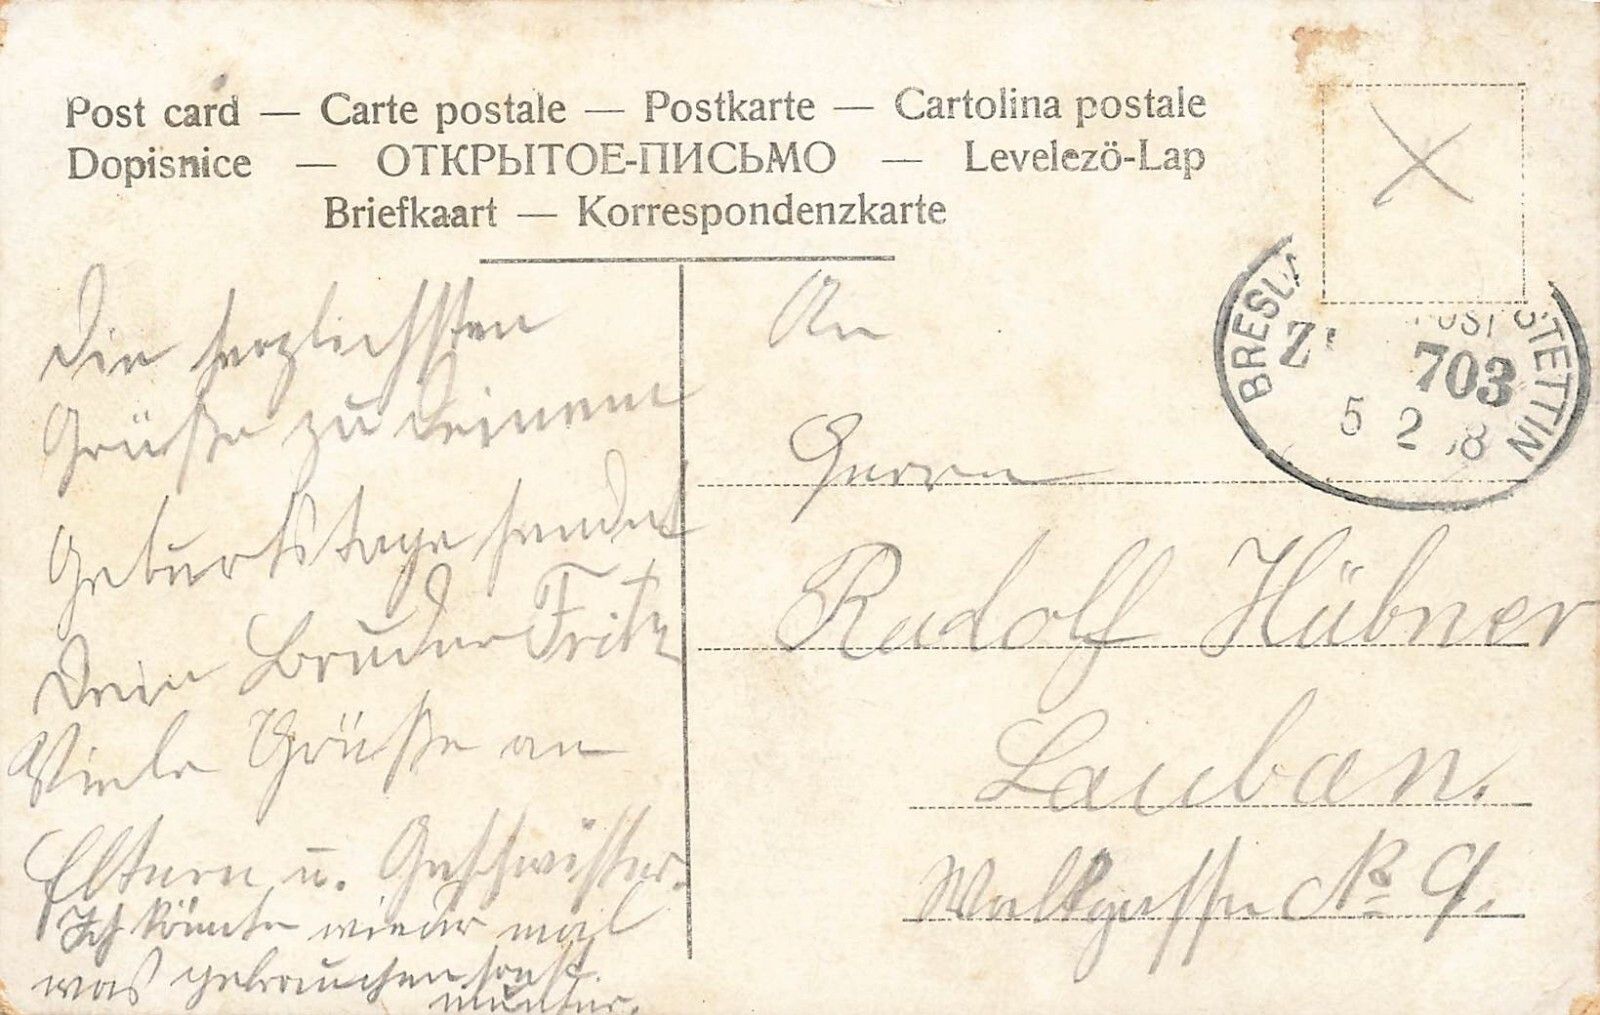 Post card — Carte postale — Postkarte — Cartolina postale
Dopisnice — ОТКРЫТОЕ-ПИСЬМО — Levelezö-Lap
Briefkaart — Korrespondenzkarte
Die herzlichsten
Grüße zu Deinem
Geburtstage sendet
Dein Bruder Fritz
Viele Grüße an
Eltern u. Geschwister.
Ich könnte wieder mal
was gebrauchen sonst
munter.
BRESL STETTIN
703
5 2 8
An
Herrn
Rudolf Hübner
Lauban.
Wallgasse No 9.